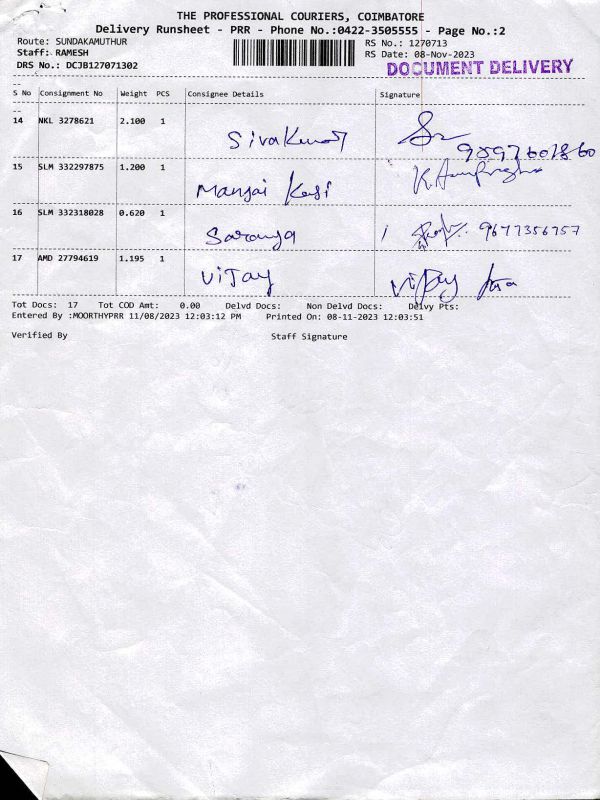 THE PROFESSIONAL COURIERS, COIMBATORE
Delivery Runsheet - PRR - Phone No.:0422-3505555 - Page No.:2
Route: SUNDAKAMUTHUR RS No.: 1270713
Staff: RAMESH RS Date: 08-Nov-2023
DRS No.: DCJB127071302 DOCUMENT DELIVERY
S No Consignment No Weight PCS Consignee Details Signature
14 NKL 3278621 2.100 1 Sivakumar
15 SLM 332297875 1.200 1 Mangai Kasi
16 SLM 332318028 0.620 1 Saranya 9677356757
17 AMD 27794619 1.195 1 Vijay Vijay
Tot Docs: 17 Tot COD Amt: 0.00 Delvd Docs: Non Delvd Docs: Delvy Pts:
Entered By :MOORTHYPRR 11/08/2023 12:03:12 PM Printed On: 08-11-2023 12:03:51
Verified By Staff Signature